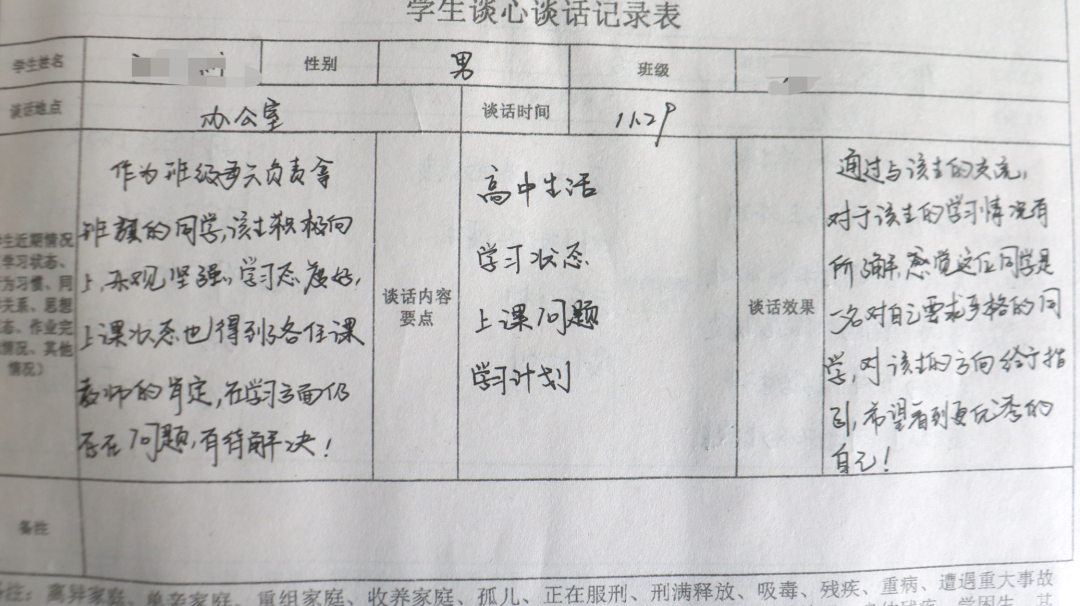 学生谈心谈话记录表
学生姓名 性别 男 班级
谈话地点 办公室 谈话时间 11.29
生近期情况
学习状态、
为习惯、同
关系、思想
态、作业完
情况、其他
情况）
作为班级负责拿
班额的同学,该生积极向
上,乐观,坚强,学习态度好,
上课状态也得到各任课
教师的肯定,在学习方面仍
存在问题,有待解决!
谈话内容
要点
高中生活
学习状态
上课问题
学习计划
谈话效果
通过与该生的交流,
对于该生的学习情况有
所了解,感觉这位同学是
一名对自己要求严格的同
学,对该生的方向给予指
引,希望看到更优秀的
自己!
备注
备注：离异家庭、单亲家庭、重组家庭、收养家庭、孤儿、正在服刑、刑满释放、吸毒、残疾、重病、遭遇重大事故